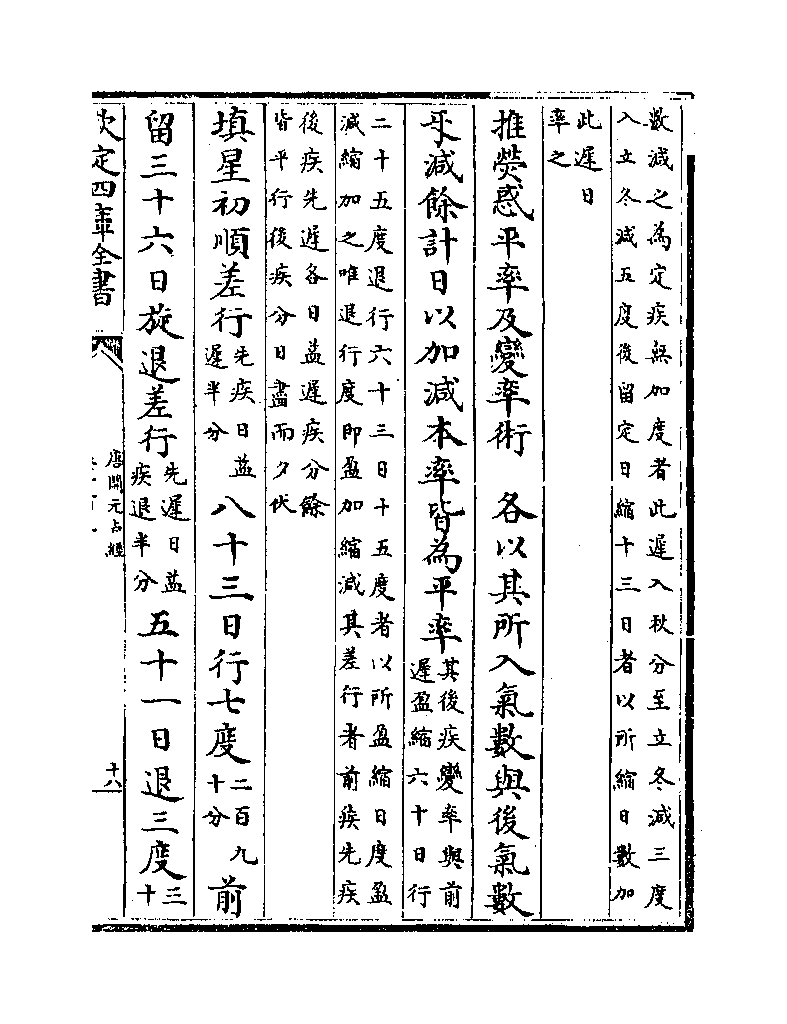 數減之為定疾無加度者此遲入秋分至立冬減三度
入立冬減五度後留定日縮十三日者以所縮日數加
此遲日
率之
推熒惑平率及變率術　各以其所入氣數與後氣數
乎減餘計日以加減本率皆為平率
其後疾變率與前
遲盈縮六十日行
二十五度退行六十三日十五度者以所盈縮日度盈
減縮加之唯退行度即盈加縮減其差行者前疾先疾
後疾先遲各日益遲疾分餘
皆平行後疾分日盡而夕伏
填星初順差行
先疾日益
遲半分
八十三日行七度
二百九
十分
前
留三十六日旋退差行
先遲日益
疾退半分
五十一日退三度
三
十
欽定四庫全書
唐開元占經
十八